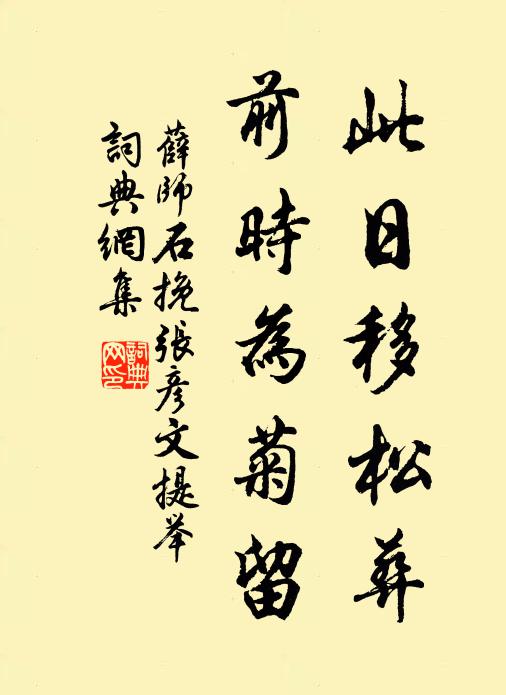 此日移松葬
前時為菊留
薛師石挽張彦文提举
詞典網集
詞典网印